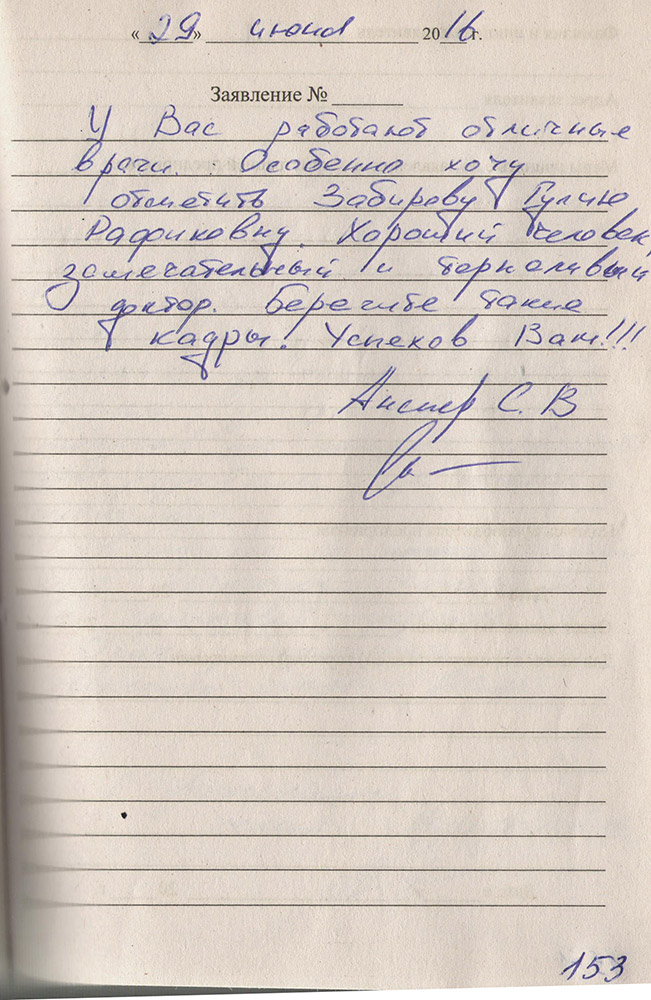 « 29 » июня 2016 г.
Заявление № ______
У Вас работают отличные
врачи. Особенно хочу
отметить Забирову Гулию
Рафиковну. Хороший человек,
замечательный и терпеливый
доктор. Берегите такие
кадры. Успехов Вам!!!
С. В
153